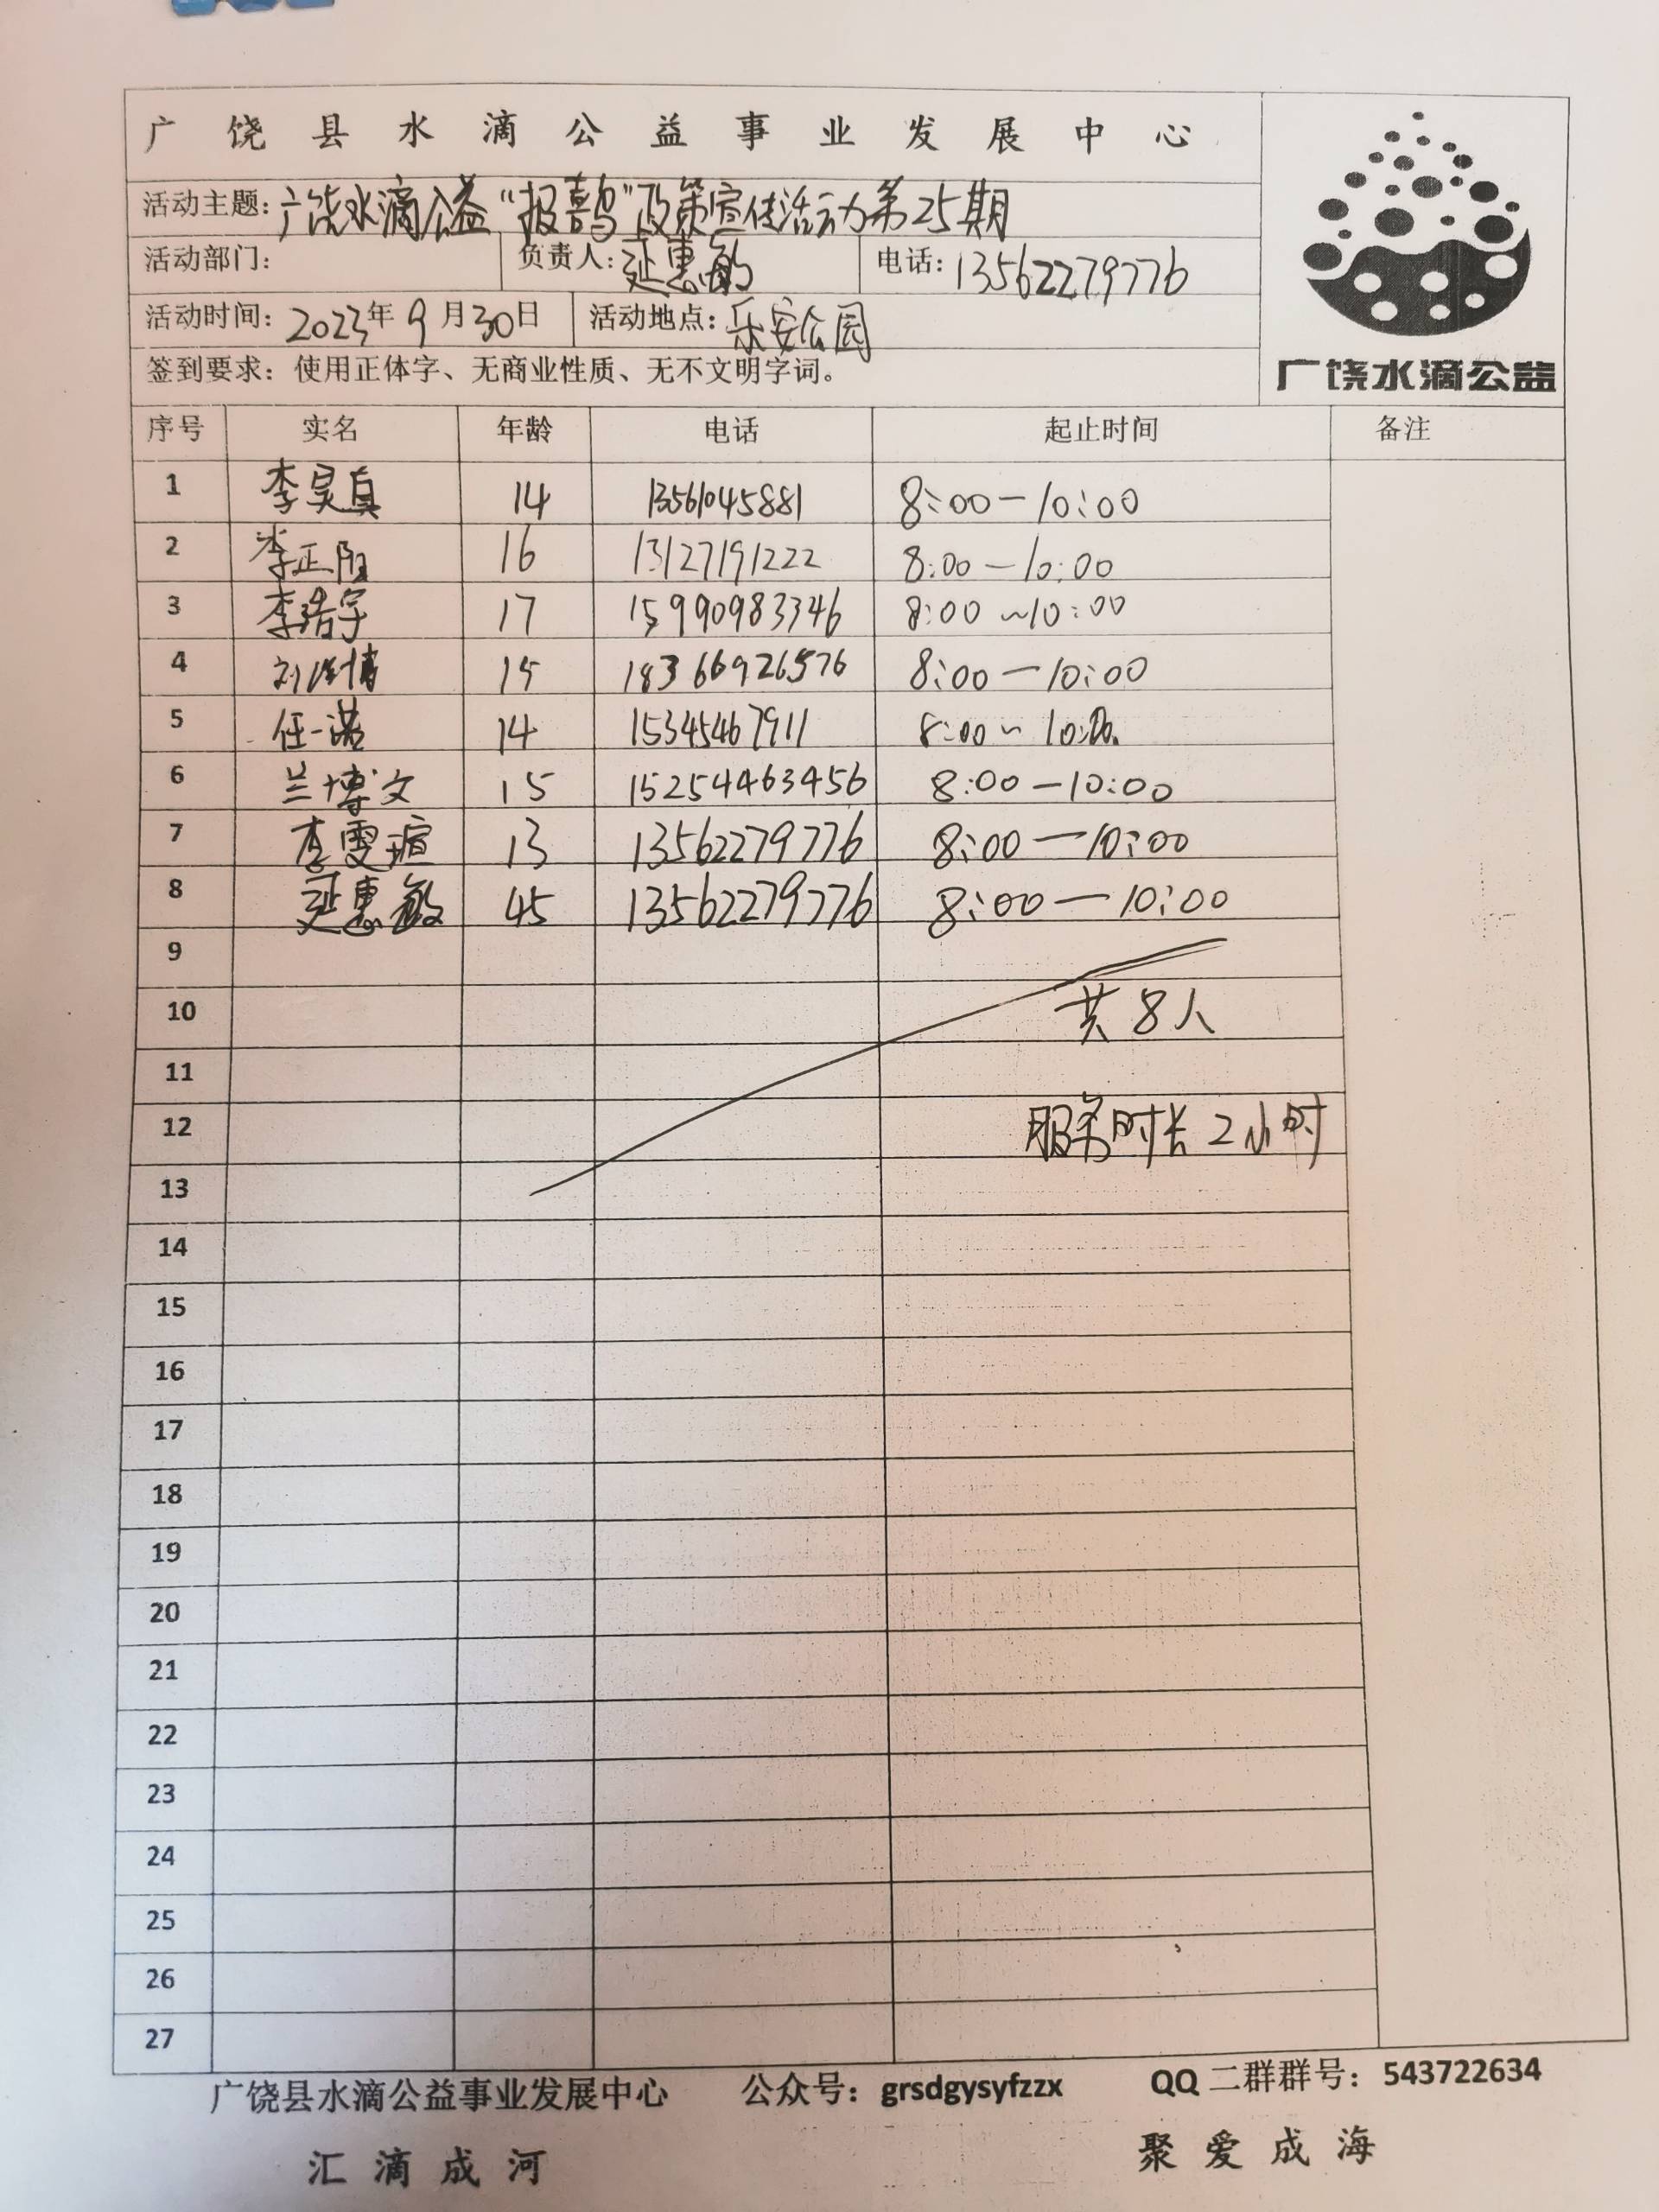 广饶县水滴公益事业发展中心
活动主题：广饶水滴公益“报喜鸟”政策宣传活动第25期
活动部门： 负责人：延惠敏 电话：13562279776
活动时间：2023年9月30日 活动地点：乐安公园
签到要求：使用正体字、无商业性质、无不文明字词。
广饶水滴公益
序号 实名 年龄 电话 起止时间 备注
1 李昊真 14 13561045881 8:00—10:00
2 李正阳 16 13127191222 8:00—10:00
3 李浩宇 17 15990983346 8:00~10:00
4 刘 博 15 18366926576 8:00—10:00
5 任一诺 14 15345467911 8:00~10:00
6 兰博文 15 15254463456 8:00—10:00
7 李雯瑄 13 13562279776 8:00—10:00
8 延惠敏 45 13562279776 8:00—10:00
9
10 共8人
11
12 服务时长2小时
13
14
15
16
17
18
19
20
21
22
23
24
25
26
27
广饶县水滴公益事业发展中心 公众号：grsdgysyfzzx QQ二群群号：543722634
汇滴成河 聚爱成海